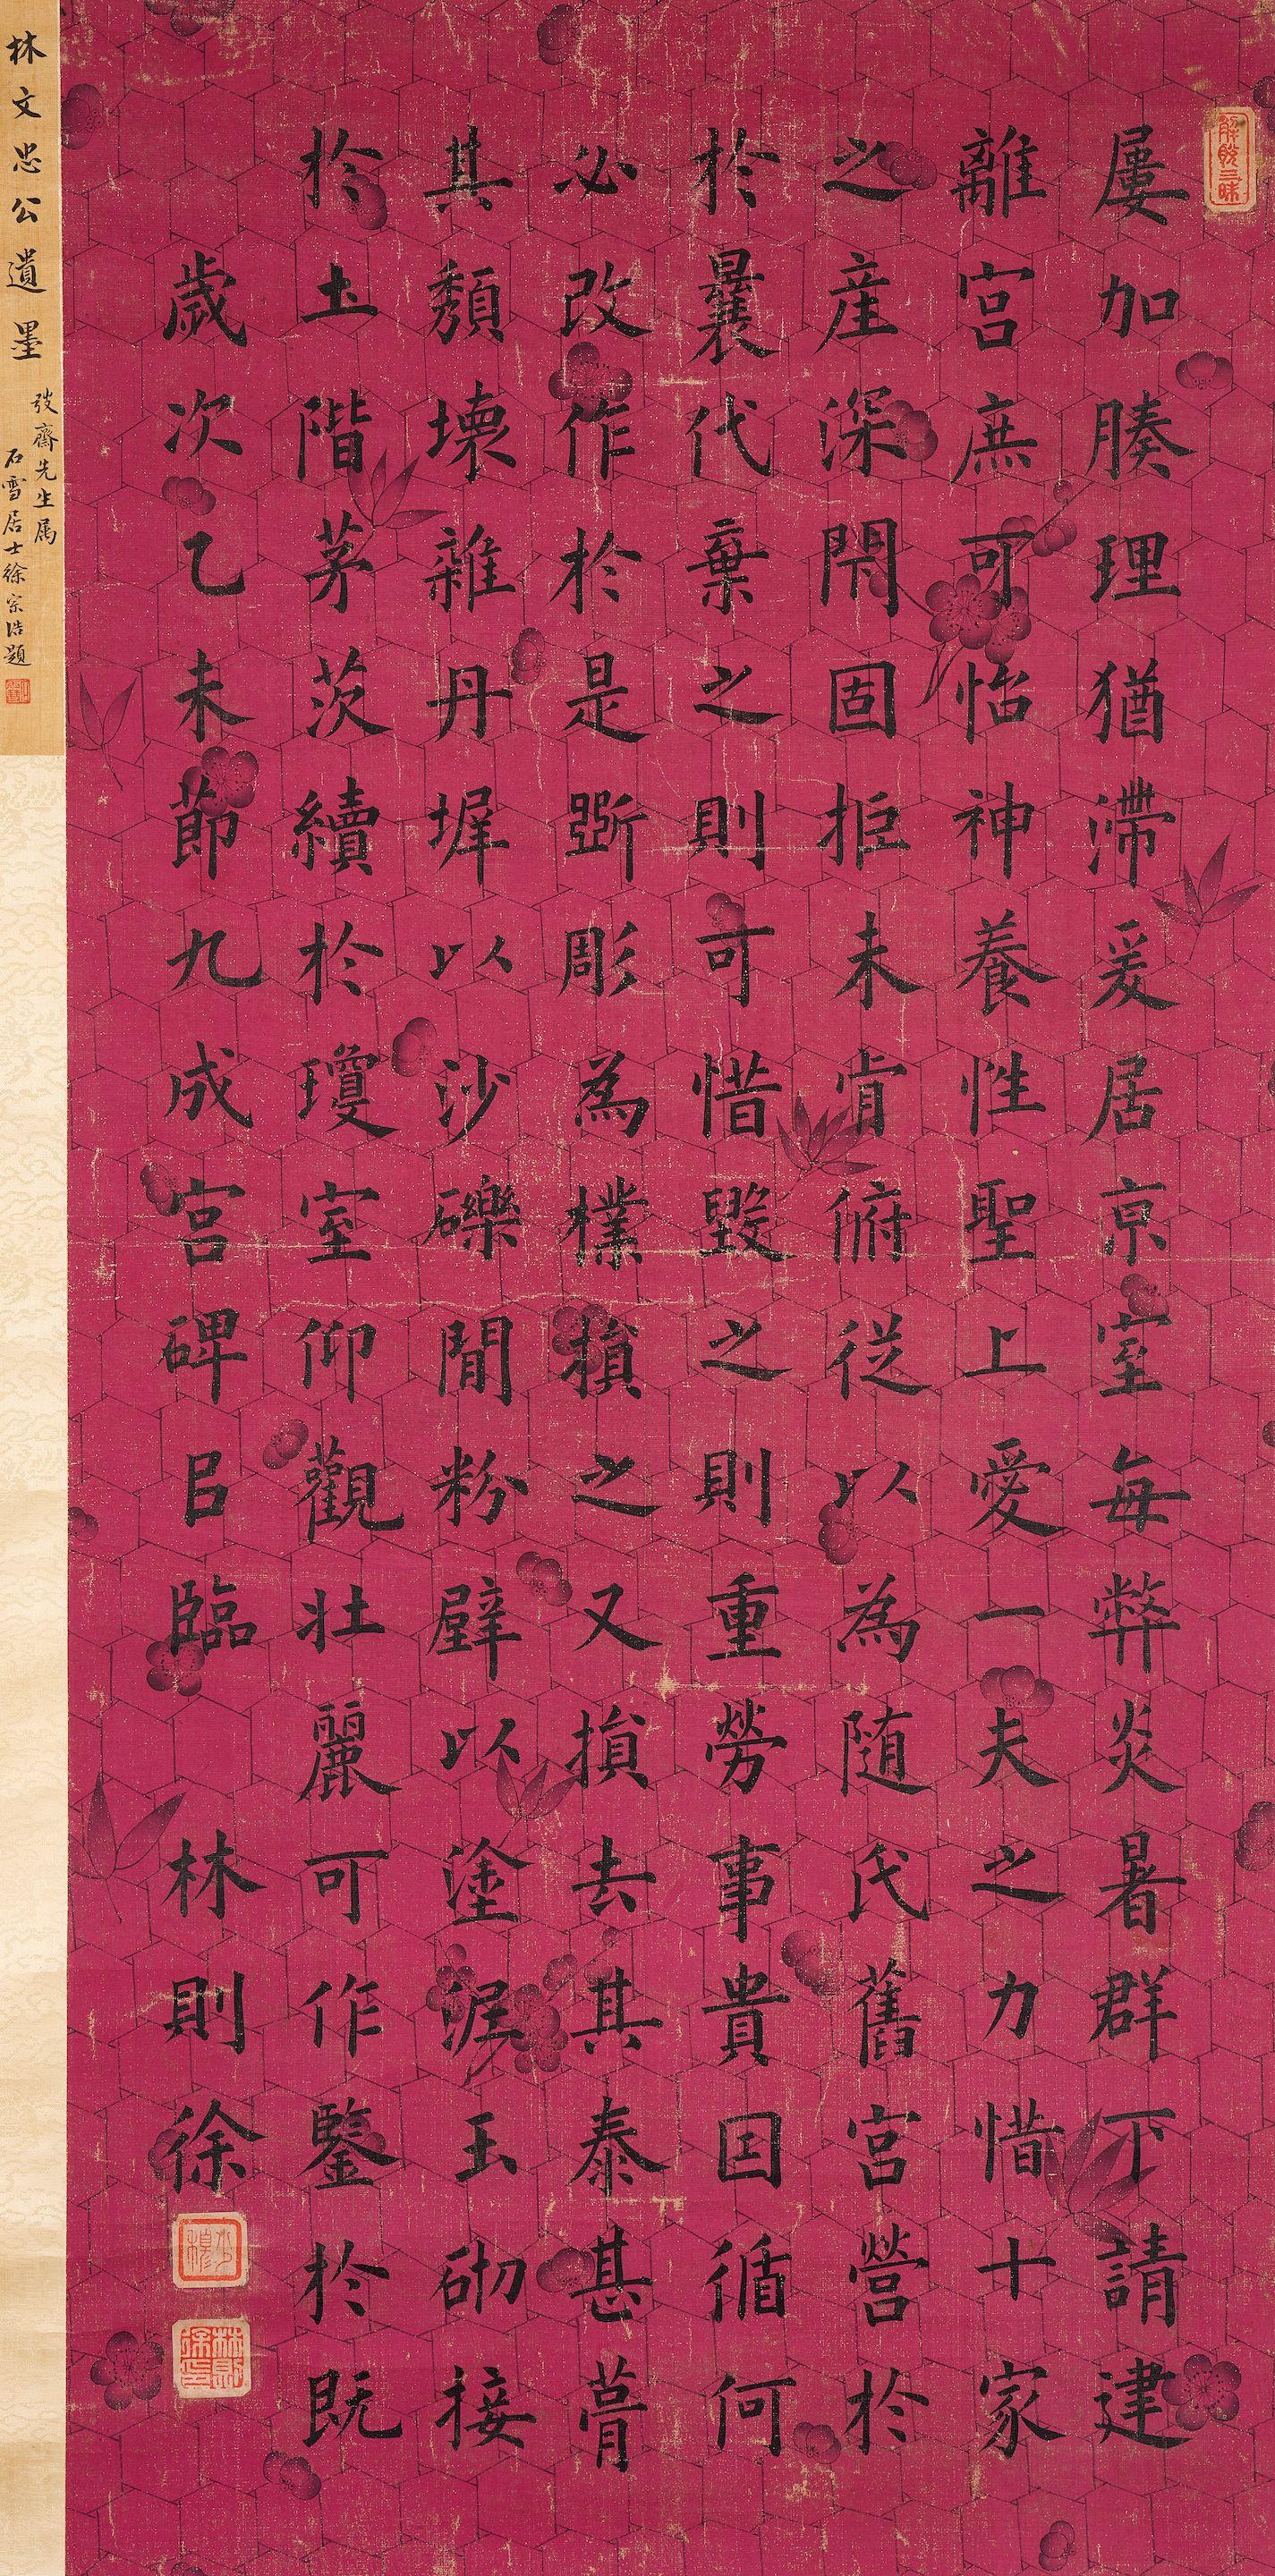 解脫三昧
屢加腠理猶滯爰居亰室每弊炎暑群下請建
離宮庶可怡神養性聖上愛一夫之力惜十家
之産深閇固拒未肯俯從以為随氏舊宮營於
於曩代棄之則可惜毀之則重勞事貴囙循何
必改作於是斵彫為樸損之又損去其泰甚葺
其頹壞雜丹墀以沙礫閒粉壁以塗泥玉砌接
於土階茅茨續於瓊室仰觀壯麗可作鑒於既
歲次乙未節九成宮碑㠯臨 林則徐
少穆
林則徐印
林文忠公遺墨
弢齋先生属
石雪居士徐宗浩題